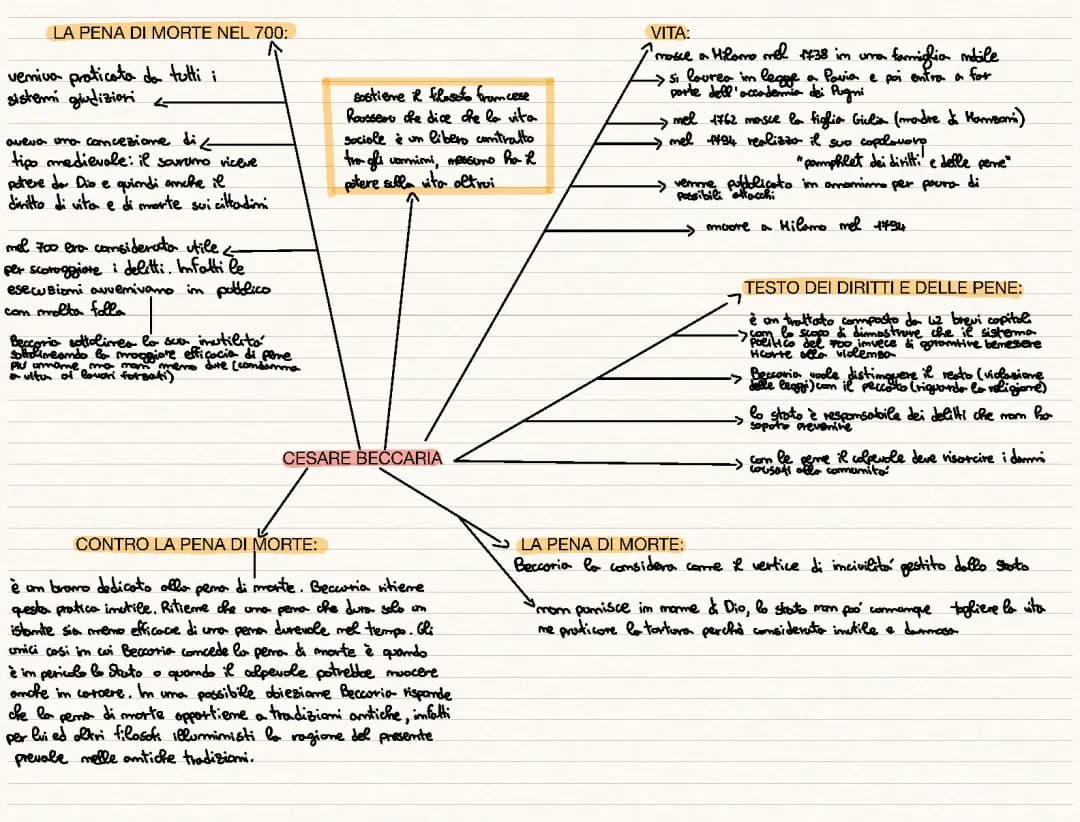 LA PENA DI MORTE NEL 700:
veniva praticata da tutti i
sistemi giudiziari
aveva una concezione di
tipo medievale: il sovrano riceve
potere da Dio e quindi anche il
diritto di vita e di morte sui cittadini
nel 700 era considerata utile
per scoraggiare i delitti. Infatti le
esecuzioni avvenivano in pubblico
con molta folla
Beccaria sottolinea la sua inutilità
sottolineando la maggiore efficacia di pene
più umane, ma non meno dure (condanna
a vita ai lavori forzati)
sostiene il filosofo francese
Rousseau che dice che la vita
sociale è un libero contratto
tra gli uomini, nessuno ha il
potere sulla vita altrui
VITA:
nasce a Milano nel 1738 in una famiglia nobile
si laurea in legge a Pavia e poi entra a far
parte dell'accademia dei Pugni
nel 1762 nasce la figlia Giulia (madre di Manzoni)
nel 1794 realizza il suo capolavoro
"pamphlet dei diritti e delle pene"
venne pubblicato in anonimo per paura di
possibili attacchi
muore a Milano nel 1794
TESTO DEI DIRITTI E DELLE PENE:
è un trattato composto da 42 brevi capitoli
con lo scopo di dimostrare che il sistema
politico del 700 invece di garantire benessere
ricorre alla violenza
Beccaria vuole distinguere il reato (violazione
delle leggi) con il peccato (riguarda la religione)
lo stato è responsabile dei delitti che non ha
saputo prevenire
con le pene il colpevole deve risarcire i danni
causati alla comunità
CESARE BECCARIA
CONTRO LA PENA DI MORTE:
è un brano dedicato alla pena di morte. Beccaria ritiene
questa pratica inutile. Ritiene che una pena che dura solo un
istante sia meno efficace di una pena durevole nel tempo. Gli
unici casi in cui Beccaria concede la pena di morte è quando
è in pericolo lo Stato o quando il colpevole potrebbe nuocere
anche in carcere. In una possibile obiezione Beccaria risponde
che la pena di morte appartiene a tradizioni antiche, infatti
per lui ed altri filosofi illuministi la ragione del presente
prevale nelle antiche tradizioni.
LA PENA DI MORTE:
Beccaria la considera come il vertice di inciviltà gestito dallo stato
non punisce in nome di Dio, lo stato non può comunque togliere la vita
ne praticare la tortura perché considerata inutile e dannosa